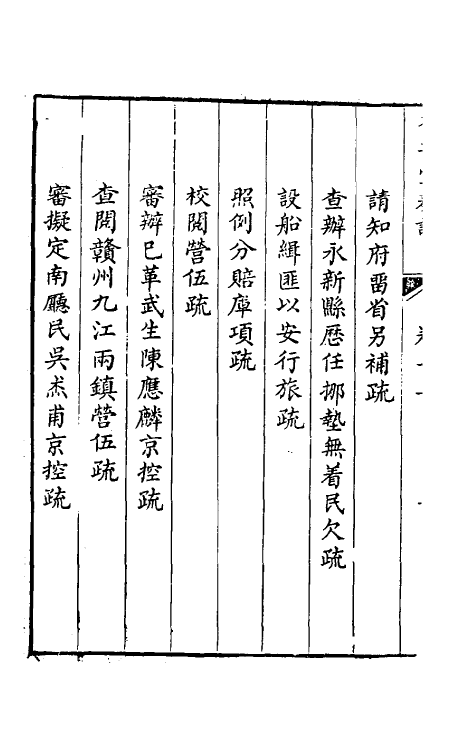 請知府畱省另補疏
查辦永新縣歷任挪墊無着民欠疏
設船緝匪以安行旅疏
照例分賠庫項疏
校閱營伍疏
審辦已革武生陳應麟京控疏
查閱贛州九江兩鎮營伍疏
審擬定南廳民吳杰甫京控疏